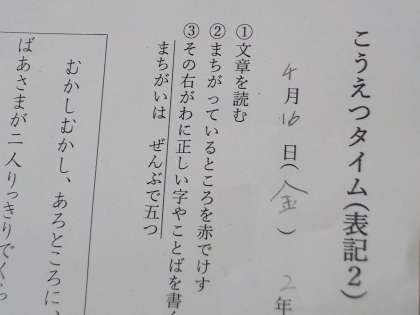 こうえつタイム(表記2)
4月16日(金) 2年
①文章を読む
②まちがっているところを赤でけす
③その右がわに正しい字やことばを書く
まちがいは ぜんぶで五つ
むかしむかし、あるところに、
ばあさまが二人りっきりでくらっ